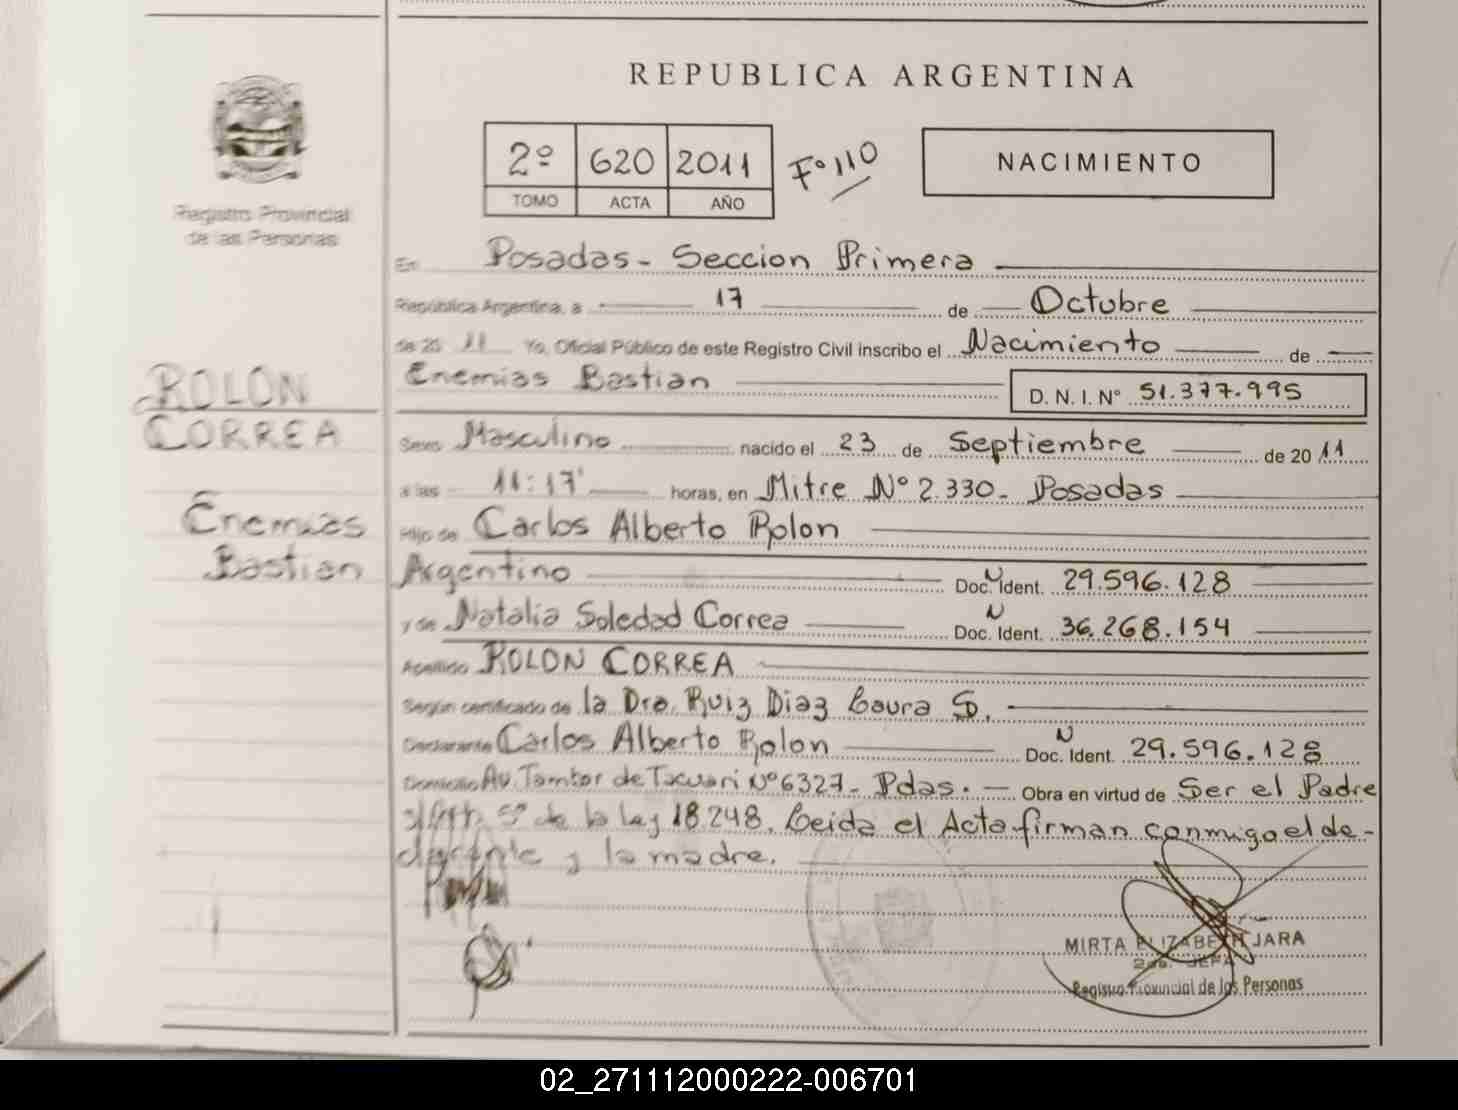 REPUBLICA ARGENTINA
Registro Provincial
de las Personas
2º 620 2011 Fº 110
TOMO ACTA AÑO
NACIMIENTO
En Posadas - Seccion Primera
República Argentina, a 17 de Octubre
de 20 11 Yo, Oficial Público de este Registro Civil inscribo el Nacimiento de
Enemias Bastian D. N. I. Nº 51.377.995
ROLON
CORREA
Enemias
Bastian
Sexo Masculino nacido el 23 de Septiembre de 20 11
a las 11:17' horas, en Mitre Nº 2.330 - Posadas
Hijo de Carlos Alberto Rolon
Argentino Doc. N Ident. 29.596.128
y de Natalia Soledad Correa Doc. N Ident. 36.268.154
Apellido ROLON CORREA
Según certificado de la Dra. Ruiz Diaz Laura S.
Declarante Carlos Alberto Rolon Doc. N Ident. 29.596.128
Domicilio Av. Tambor de Tacuari Nº 6327 - Pdas. - Obra en virtud de Ser el Padre
Art. 5º de la Ley 18.248. Leida el Acta firman conmigo el de-
y la madre.
MIRTA ELIZABETH JARA
JEFA
Registro Provincial de las Personas
02_271112000222-006701